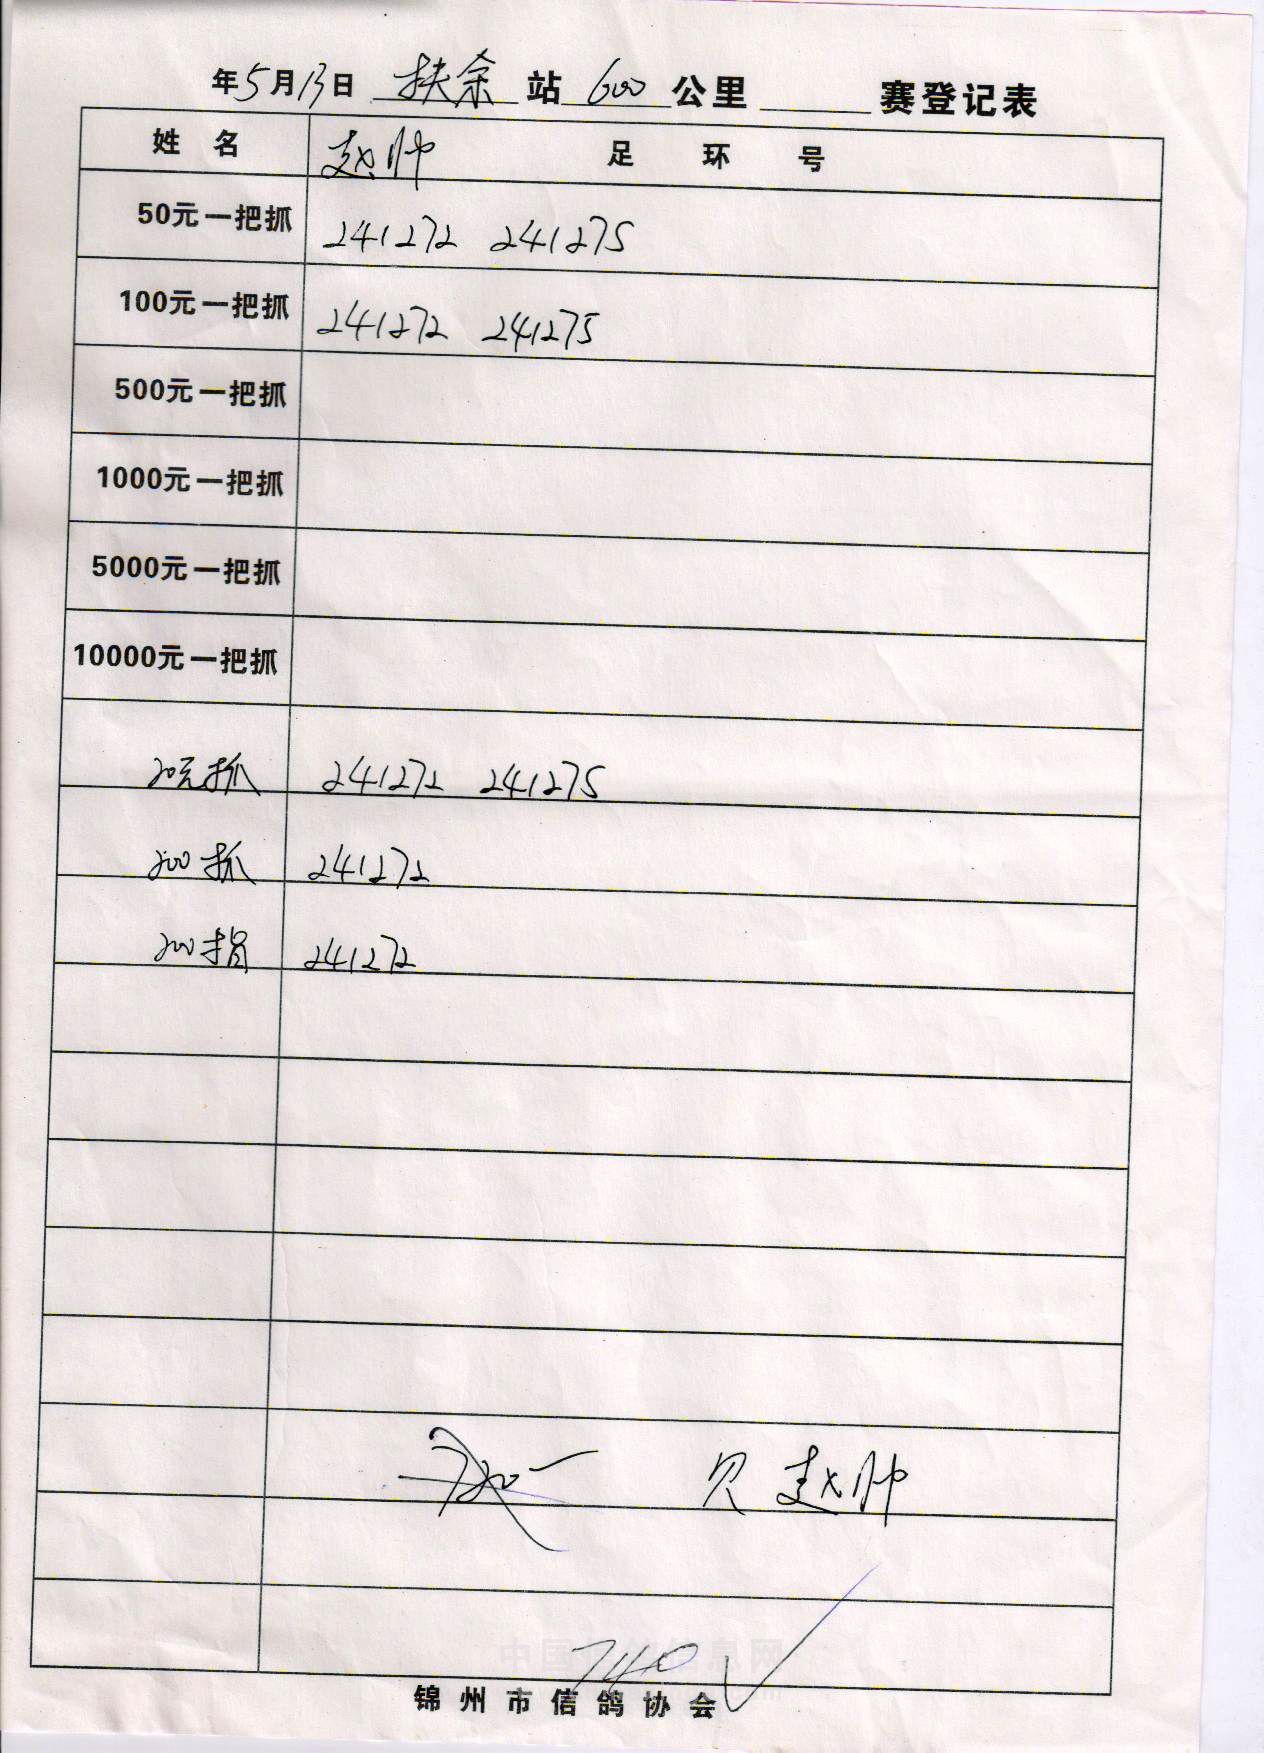 年5月13日 扶余 站 600 公里 赛登记表
姓 名 赵帅 足 环 号
50元一把抓 241272 241275
100元一把抓 241272 241275
500元一把抓
1000元一把抓
5000元一把抓
10000元一把抓
20元抓 241272 241275
200抓 241272
200指 241272
欠 赵帅
740
锦州市信鸽协会